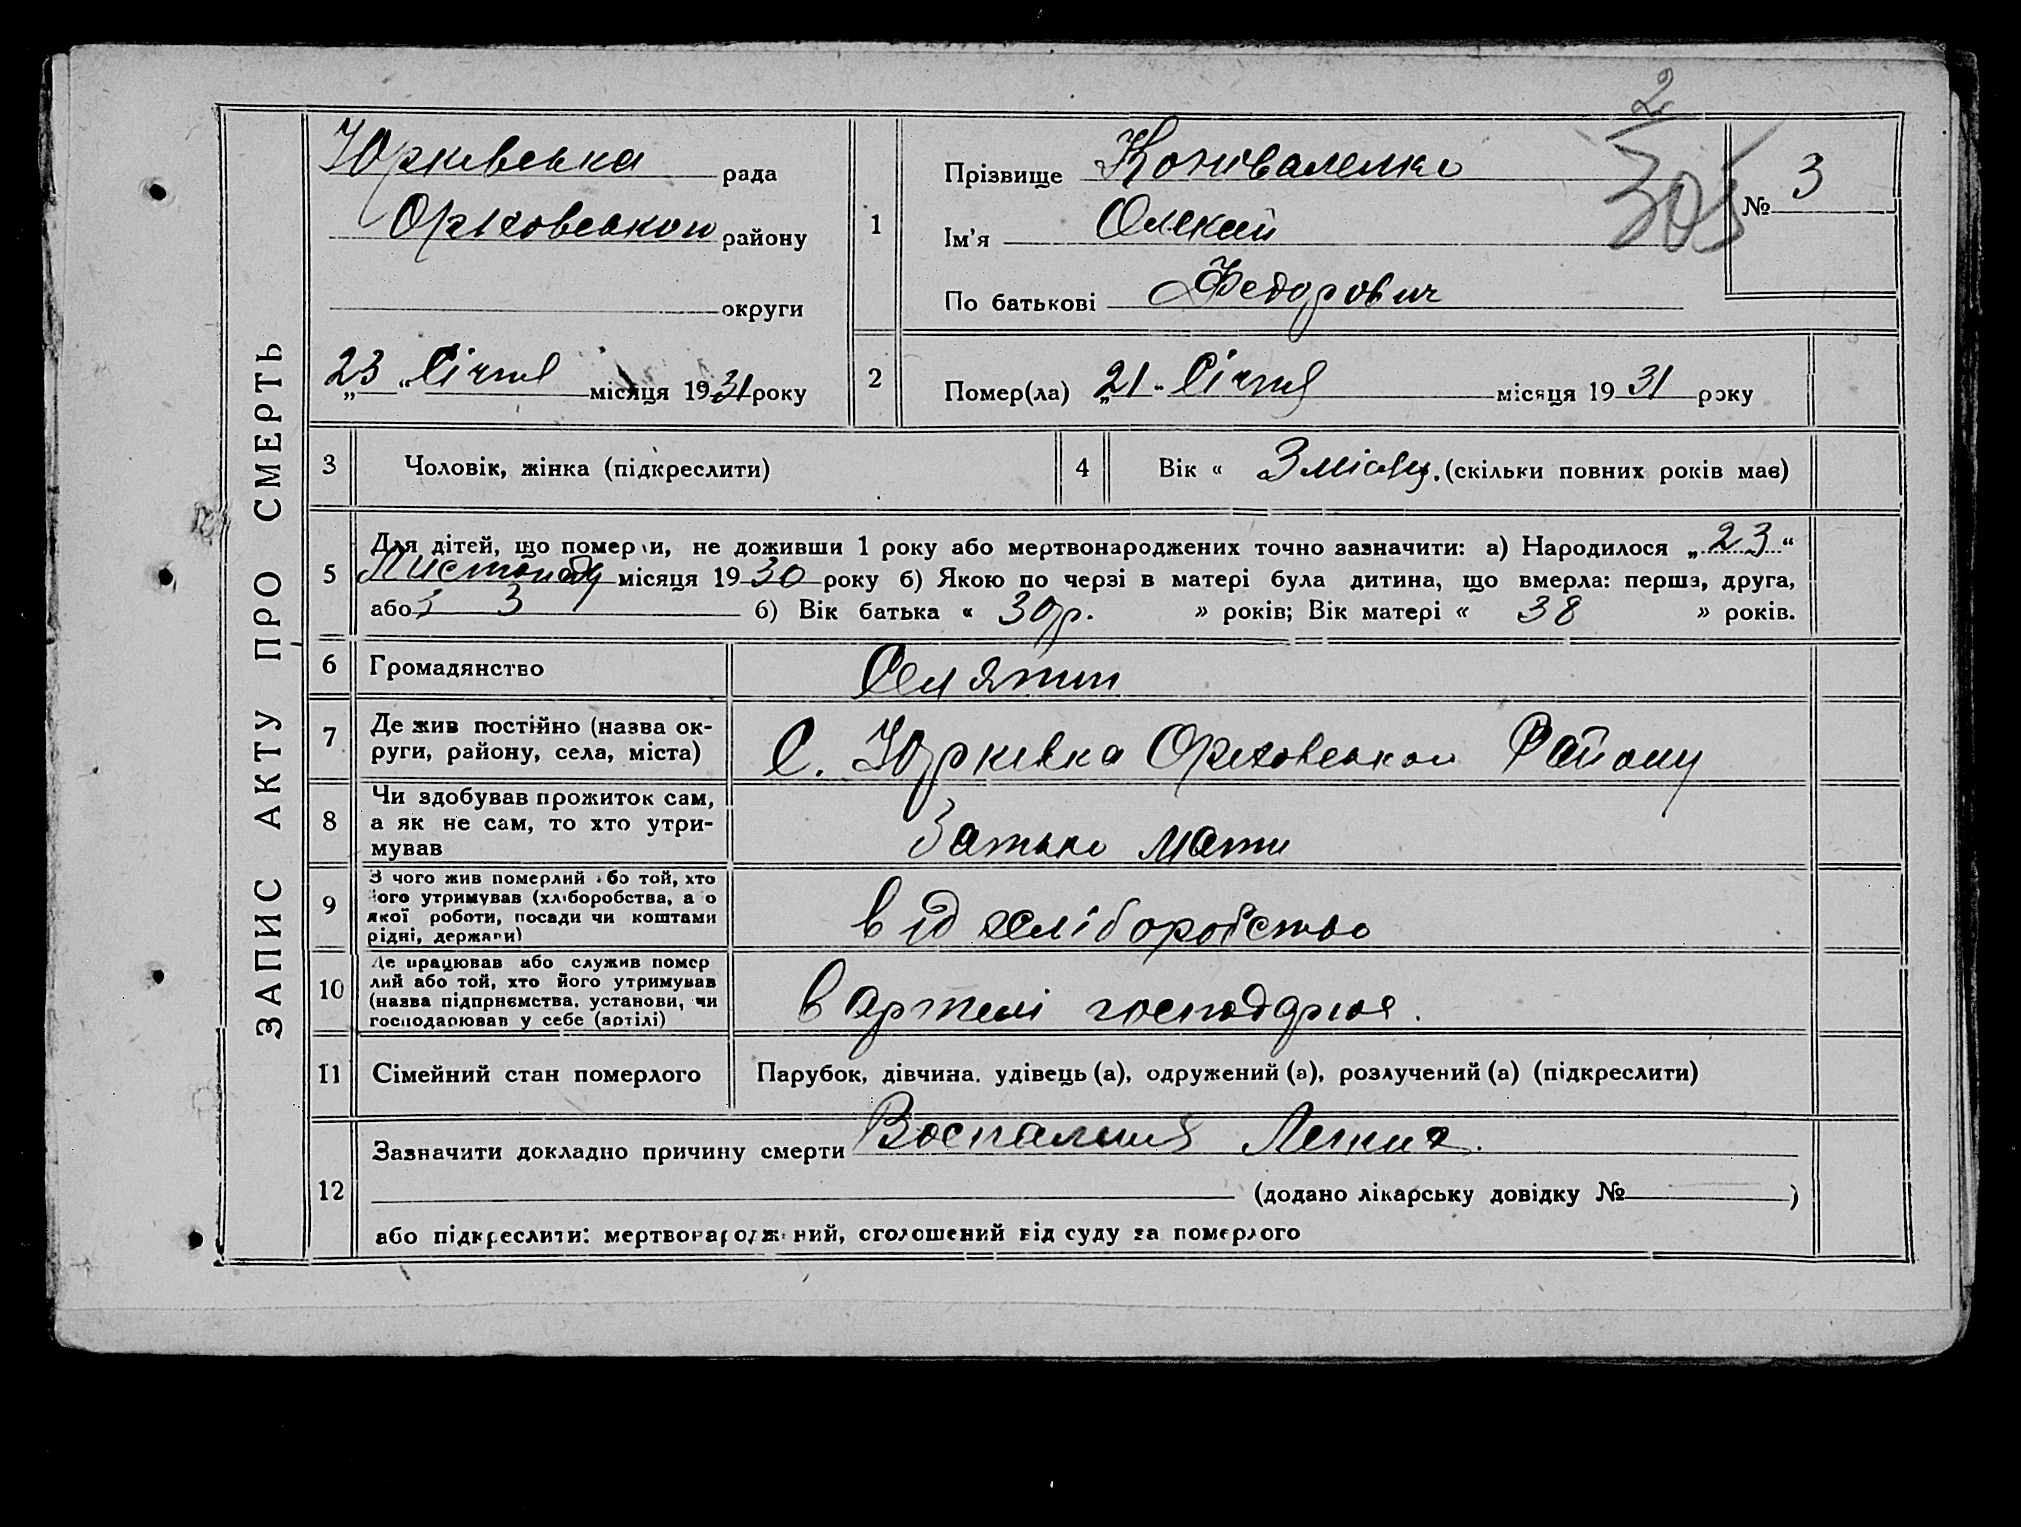 ЗАПИС АКТУ ПРО СМЕРТЬ
2
305
Юрківська рада
Оріховськои району
округи
„23“ Січня місяця 1931 року
1
Прізвище Коніваленко
Ім'я Олексій
По батькові Федорович
№ 3
2
Помер(ла) „21“ Січня місяця 1931 року
3 Чоловік, жінка (підкреслити)
4 Вік « 3 місяц. (скільки повних років має)
5 Для дітей, що померли, не доживши 1 року або мертвонароджених точно зазначити: а) Народилося „23“
Листопаду місяця 1930 року б) Якою по черзі в матері була дитина, що вмерла: перша, друга,
або 3 б) Вік батька « 30 р. » років; Вік матері « 38 » років.
6 Громадянство Селянин
7 Де жив постійно (назва ок-
руги, району, села, міста) С. Юрківка Оріховськои Району
8 Чи здобував прожиток сам,
а як не сам, то хто утри-
мував Батько Мати
9 З чого жив померлий або той, хто
його утримував (хліборобства, або
якої роботи, посади чи коштами
рідні, держави) від хліборобства
10 Де працював або служив помер
лий або той, хто його утримував
(назва підприємства, установи, чи
господарював у себе (артілі) в Артелі господарює.
11 Сімейний стан померлого Парубок, дівчина, удівець (а), одружений (а), розлучений (а) (підкреслити)
12 Зазначити докладно причину смерти Воспаления Легких.
(додано лікарську довідку № )
або підкреслити: мертвонароджений, оголошений від суду за померлого